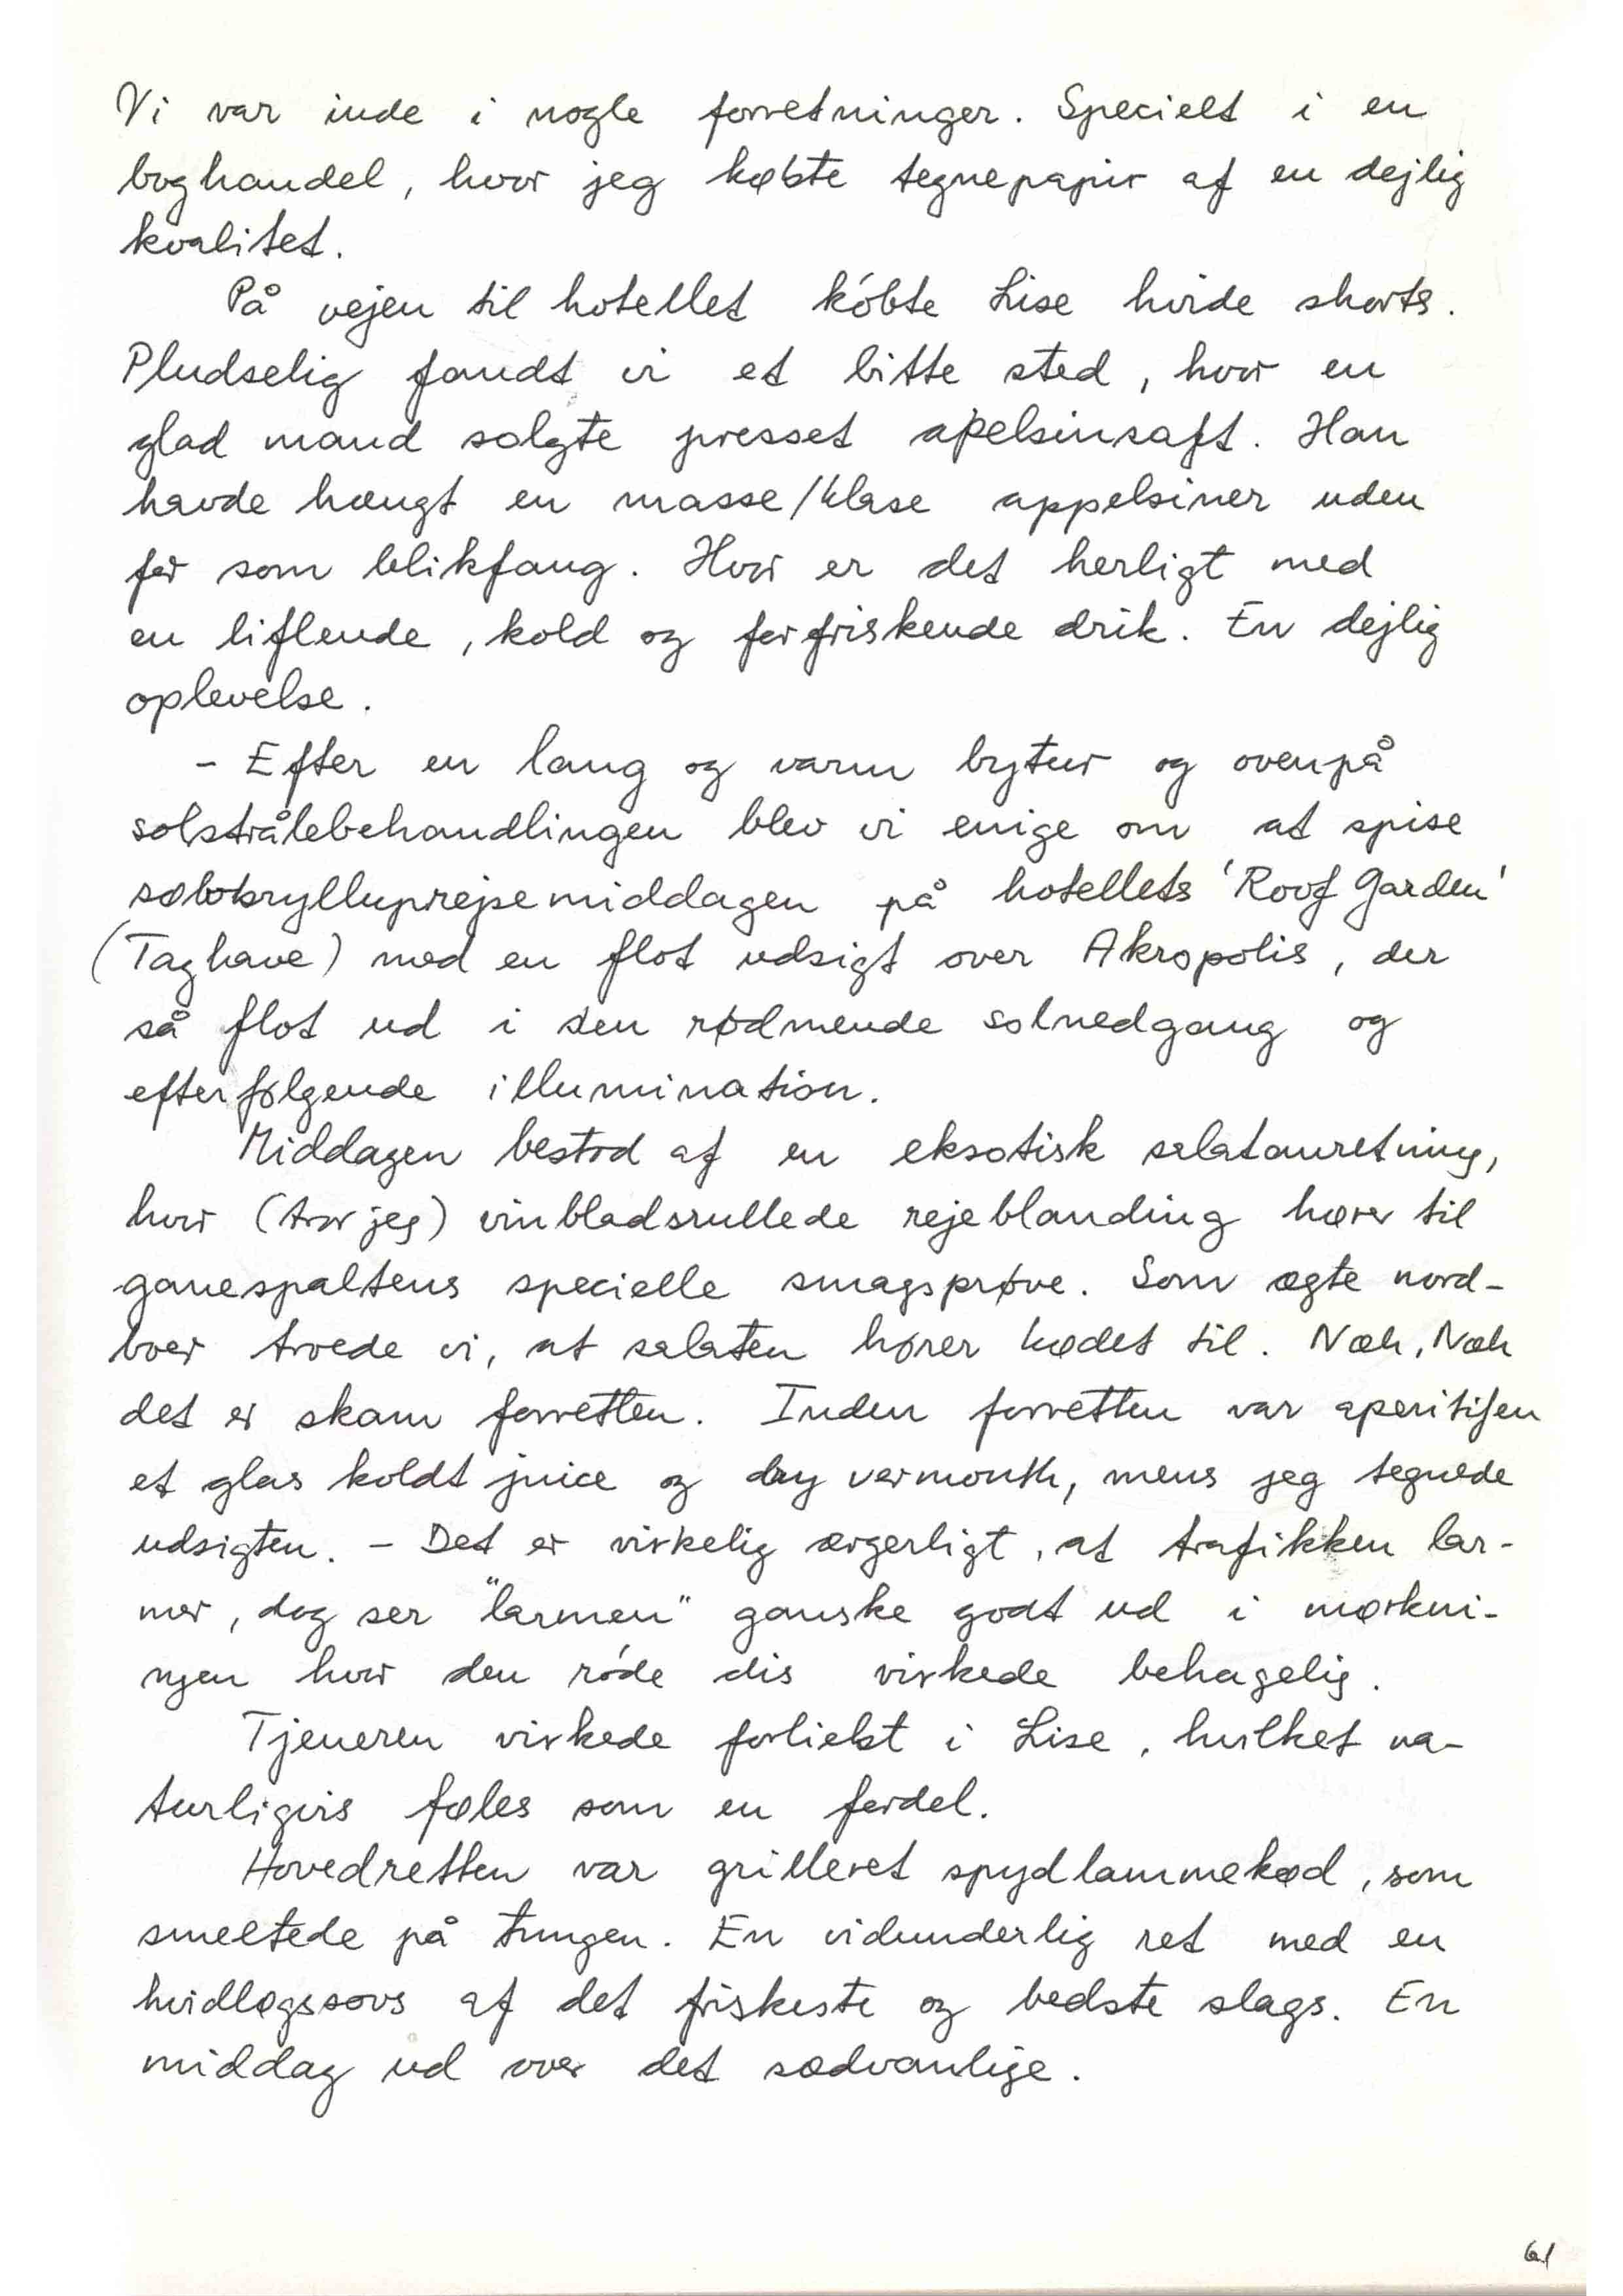 Vi var inde i nogle forretninger. Specielt i en
boghandel, hvor jeg købte tegnepapir af en dejlig
kvalitet.
På vejen til hotellet købte Lise hvide shorts.
Pludselig fandt vi et bitte sted, hvor en
glad mand solgte presset apelsinsaft. Han
havde hængt en masse/klase appelsiner uden
for som blikfang. Hvor er det herligt med
en liflende, kold og forfriskende drik. En dejlig
oplevelse.
- Efter en lang og varm bytur og ovenpå
solstrålebehandlingen blev vi enige om at spise
sølvbryllupsrejsemiddagen på hotellets 'Roof Garden'
(Taghave) med en flot udsigt over Akropolis, der
så flot ud i den rødmende solnedgang og
efterfølgende illumination.
Middagen bestod af en eksotisk salatanretning,
hvor (tror jeg) vinbladsrullede rejeblanding hører til
ganespaltens specielle smagsprøve. Som ægte nord-
boer troede vi, at salaten hører kødet til. Næh, Næh
det er skam forretten. Inden forretten var aperitifen
et glas koldt juice og dry vermouth, mens jeg tegnede
udsigten. - Det er virkelig ærgerligt, at trafikken lar-
mer, dog ser "larmen" ganske godt ud i mørkni-
ngen hvor den røde dis virkede behagelig.
Tjeneren virkede forliebt i Lise, hvilket na-
turligvis føles som en fordel.
Hovedretten var grilleret spydlammekød, som
smeltede på tungen. En vidunderlig ret med en
hvidløgssovs af det friskeste og bedste slags. En
middag ud over det sædvanlige.
61